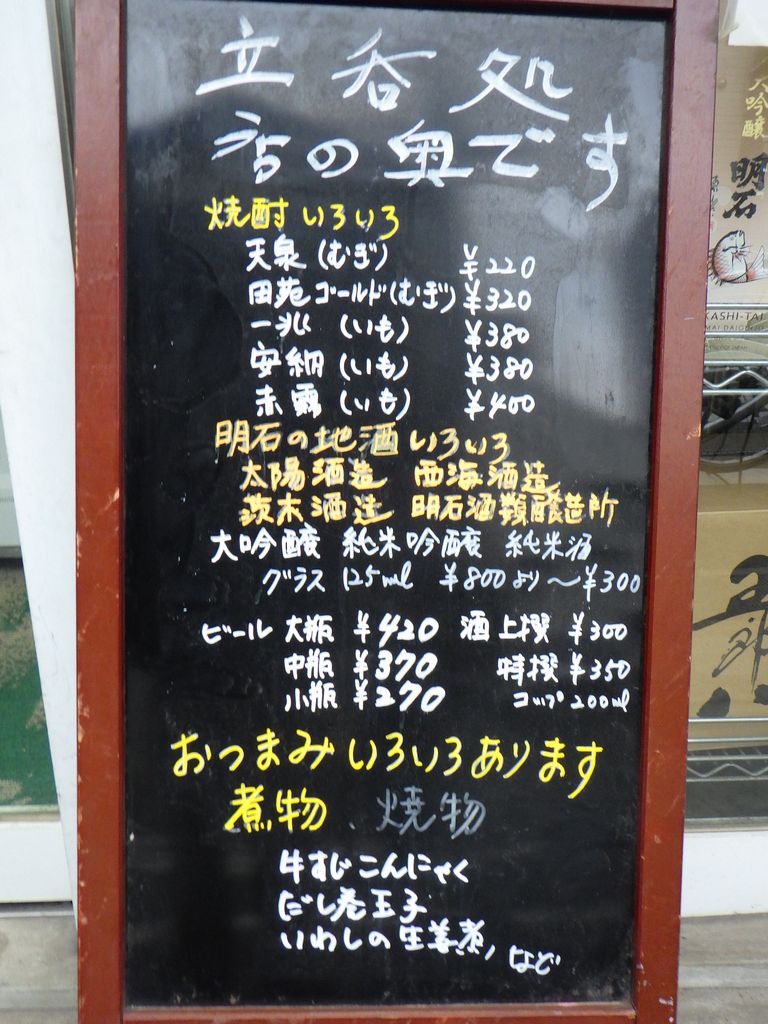 立呑処
店の奥です
焼酎いろいろ
天泉(むぎ) ¥220
田苑ゴールド(むぎ) ¥320
一兆 (いも) ¥380
安納 (いも) ¥380
赤霧 (いも) ¥400
明石の地酒いろいろ
太陽酒造 西海酒造
茨木酒造 明石酒類醸造所
大吟醸 純米吟醸 純米酒
グラス 125ml ¥800より～¥300
ビール 大瓶 ¥420 酒 上撰 ¥300
中瓶 ¥370 特撰 ¥350
小瓶 ¥270 コップ200ml
おつまみいろいろあります
煮物、焼物
牛すじこんにゃく
だし巻玉子
いわしの生姜煮、など
大吟醸
明石
KASHI-TAI
MAI DAIGINJO